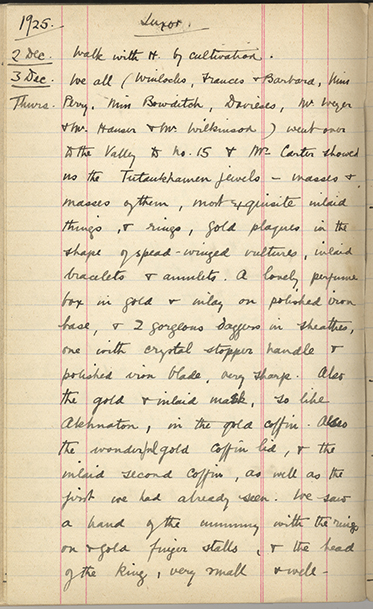 1925. Luxor.
2 Dec. Walk with H. by cultivation.
3 Dec. We all (Winlocks, Frances & Barbara, Miss
Thurs. Perry, Miss Bowditch, Davieses, Mr Weyer
& Mr. Hauser & Mr. Wilkinson) went over
to the Valley to No. 15 & Mr Carter showed
us the Tutankhamen jewels – masses &
masses of them, most exquisite inlaid
things, & rings, gold plaques in the
shape of spead-winged vultures, inlaid
bracelets & amulets. A lovely perfume
box in gold & inlay on polished iron
base, & 2 gorgeous daggers in sheathes,
one with crystal stopper handle &
polished iron blade, very sharp. Also
the gold & inlaid mask, so like
Akhnaton, in the gold coffin. Also
the wonderful gold coffin lid, & the
inlaid second coffin, as well as the
first we had already seen. We saw
a hand of the mummy with the rings
on & gold finger stalls, & the head
of the King, very small & well-